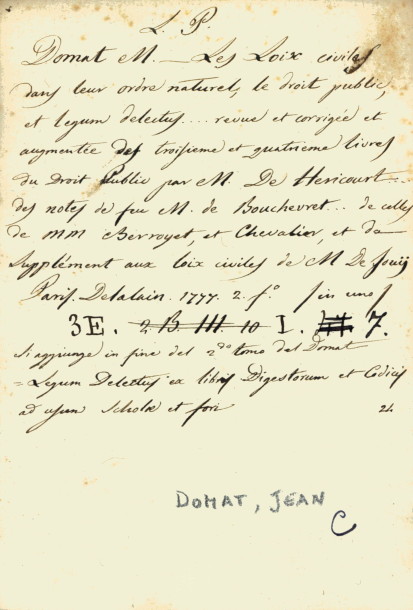 L. P.
Domat M. — Les Loix civiles
dans leur ordre naturel, le droit public,
et legum delectus.... revue et corrigée et
augmentée des troisieme et quatrieme livres
du Droit Public par M. De Hericourt...
des notes de feu M. de Bouchevret... de celles
de MM Berroyet, et Chevalier, et de
Supplément aux loix civiles de M De Jouy
Paris. Delalain. 1777. 2 f.º (in uno)
3E. 2 B. III 10 I. 7.
Si aggiunge in fine del 2do tomo del Domat
= Legum Delectus ex libris Digestorum et Codicis
ad usum scholæ et fori 24
DOMAT, JEAN
C